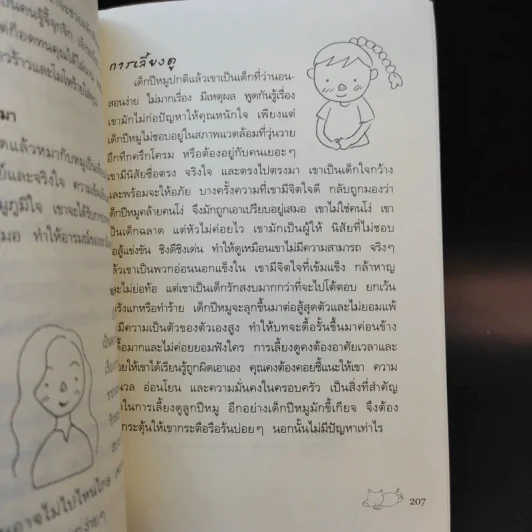 การเลี้ยงดู
เด็กปีหมูปกติแล้วเขาเป็นเด็กที่ว่านอน-
สอนง่าย ไม่มากเรื่อง มีเหตุผล พูดกันรู้เรื่อง
เขามักไม่ก่อปัญหาให้คุณหนักใจ เพียงแต่
เด็กปีหมูไม่ชอบอยู่ในสภาพแวดล้อมที่วุ่นวาย
อึกทึกครึกโครม หรือต้องอยู่กับคนเยอะๆ
เขามีนิสัยซื่อตรง จริงใจ และตรงไปตรงมา เขาเป็นเด็กใจกว้าง
และพร้อมจะให้อภัย บางครั้งความที่เขามีจิตใจดี กลับถูกมองว่า
เด็กปีหมูคล้ายคนโง่ จึงมักถูกเอาเปรียบอยู่เสมอ เขาไม่ใช่คนโง่ เขา
เป็นเด็กฉลาด แต่หัวไม่ค่อยไว เขามักเป็นผู้ให้ นิสัยที่ไม่ชอบ
อสู้แข่งขัน ชิงดีชิงเด่น ทำให้ดูเหมือนเขาไม่มีความสามารถ จริงๆ
แล้วเขาเป็นพวกอ่อนนอกแข็งใน เขามีจิตใจที่เข้มแข็ง กล้าหาญ
ละไม่ย่อท้อ แต่เขาเป็นเด็กรักสงบมากกว่าที่จะไปโต้ตอบ ยกเว้น
รังแกหรือทำร้าย เด็กปีหมูจะลุกขึ้นมาต่อสู้สุดตัวและไม่ยอมแพ้
มีความเป็นตัวของตัวเองสูง ทำให้บทจะดื้อรั้นขึ้นมาค่อนข้าง
ดื้อมากและไม่ค่อยยอมฟังใคร การเลี้ยงดูคงต้องอาศัยเวลาและ
ยให้เขาได้เรียนรู้ถูกผิดเอาเอง คุณคงต้องคอยชี้แนะให้เขา ความ
นวล อ่อนโยน และความมั่นคงในครอบครัว เป็นสิ่งที่สำคัญ
ในการเลี้ยงดูลูกปีหมู อีกอย่างเด็กปีหมูมักขี้เกียจ จึงต้อง
กระตุ้นให้เขากระตือรือร้นบ่อยๆ นอกนั้นไม่มีปัญหาเท่าไร
207